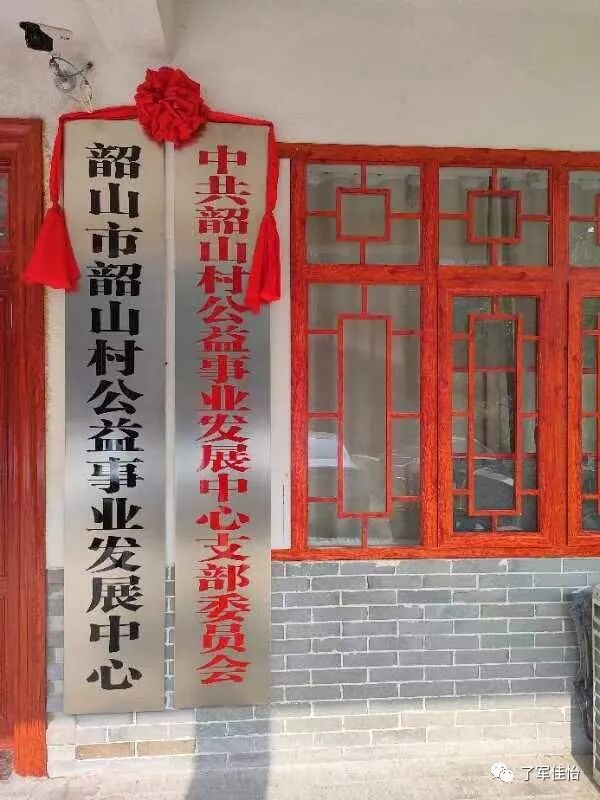 中共韶山村公益事业发展中心支部委员会
韶山市韶山村公益事业发展中心
了军佳怡